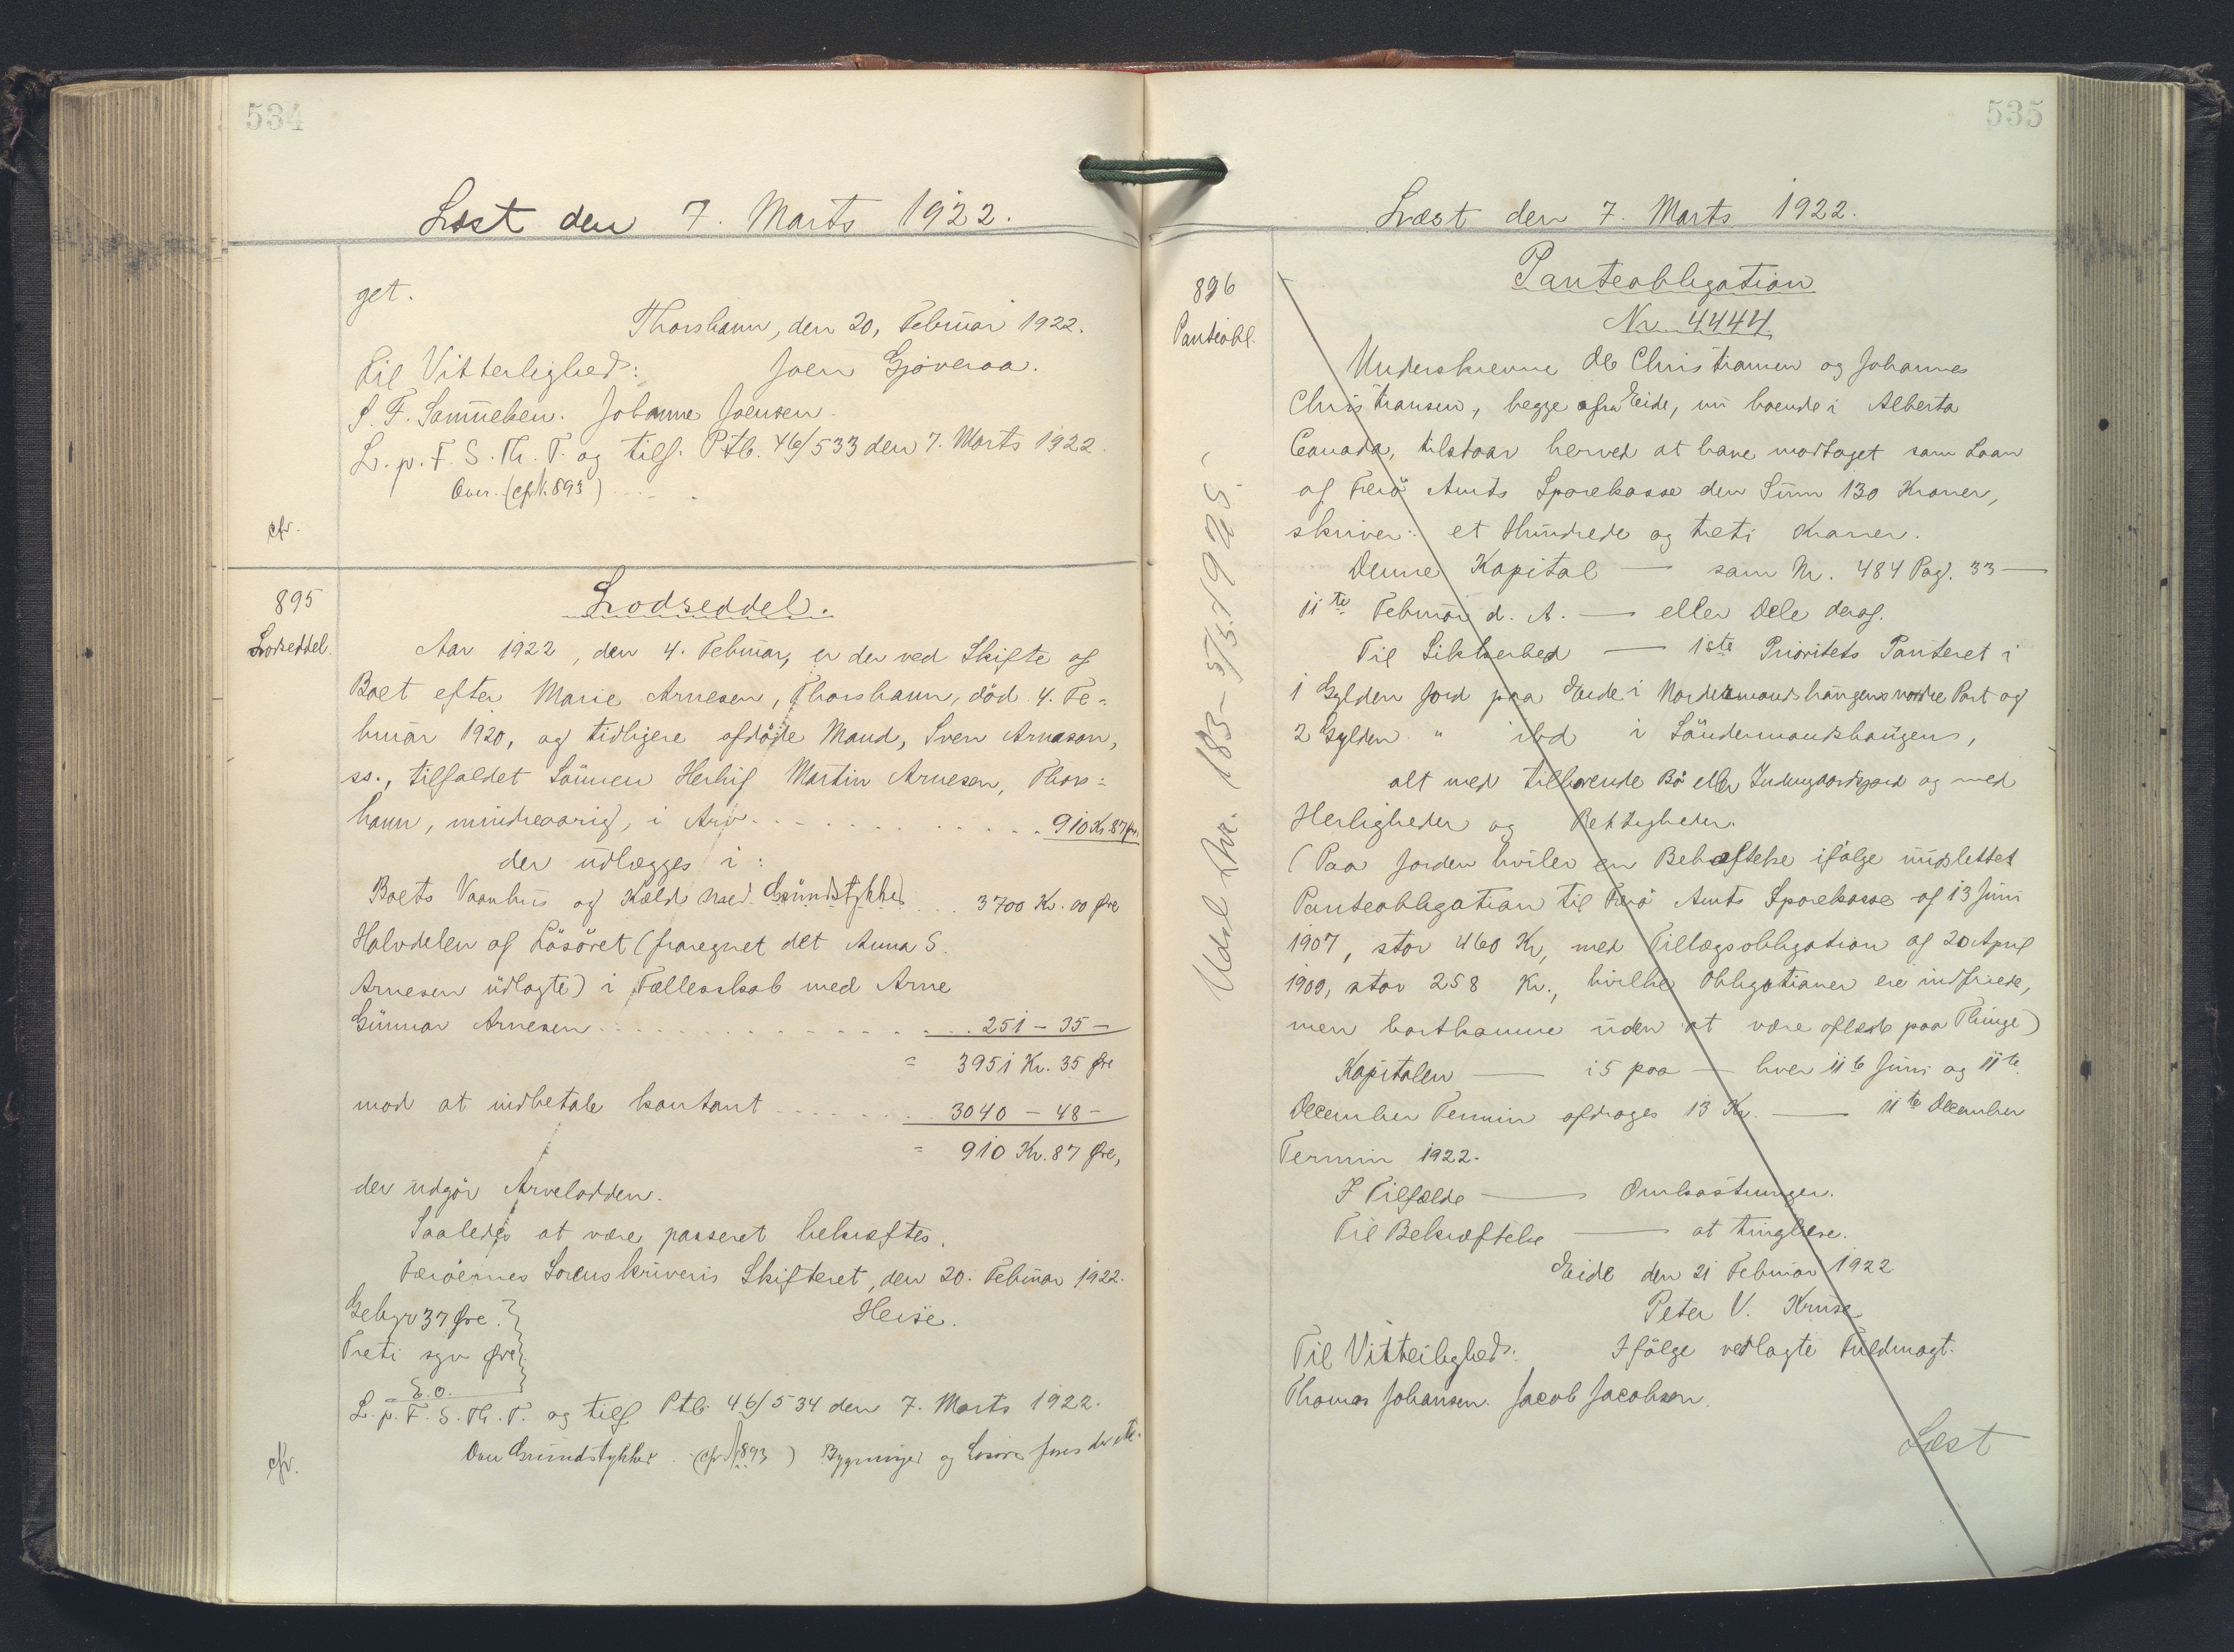 534
Læst den 7. Marts 1922.
get.
Thorshavn, den 20, Februar 1922.
Til Vitterlighed: Joen Gjoveraa.
S. F. Samuelsen. Johanne Joensen.
L. p. F. S. Th. T. og tilf. Ptb. 46/533 den 7. Marts 1922.
Over. (cfr. 893)
cfr.
895
Lodseddel.
Lodseddel.
Aar 1922, den 4. Februar, er der ved Skifte af
Boet efter Marie Arnesen, Thorshavn, död 4. Fe-
bruar 1920, og tidligere afdöde Mand, Sven Arnason,
ss., tilfaldet Sönnen Herluf Martin Arnesen, Thors-
havn, mindreaarig, i Arv 910 Kr. 87 Øre
der udlægges i:
Boets Vaanhus og Kælder med Grundstykke 3700 Kr. 00 Øre
Halvdelen af Lösöret (fraregnet det Anna S.
Arnesen udlagte) i Fællesskab med Arne
Gunnar Arnesen 251 - 35 -
= 3951 Kr. 35 Øre
mod at indbetale kontant 3040 - 48 -
= 910 Kr. 87 Øre,
der udgör Arvelodden.
Saaledes at være passeret bekræftes.
Færöernes Sorenskriveris Skifteret, den 20. Februar 1922.
Heise.
Gebyr 37 Øre.
Treti syv Øre
E.O.
L. p. F. S. Th. T. og tilf Ptb. 46/534 den 7. Marts 1922.
Over Grundstykket (cfr. 893) Bygninger og Lösöre
cfr.
535
Læst den 7. Marts 1922.
896
Panteobl.
Udsl. Lbr. 183 - 5/5. 1925.
Panteobligation
Nr. 4444.
Underskrevne Ole Christiansen og Johannes
Christiansen, begge fra Eide, nu boende i Alberta
Canada, tilstaar herved at have modtaget som Laan
af Færö Amts Sparekasse den Sum 130 Kroner,
skriver: et Hundrede og treti Kroner.
Denne Kapital — sam Nr. 484 Pag. 33 —
11te Februar d. A. — eller Dele deraf.
Til Sikkerhed — 1ste Prioritets Panteret i
1 Gylden Jord paa Eide i Nordermandshaugens nordre Part og
2 Gylden " ibd i Söndermandshaugen,
alt med tilhørende Bö eller Indengaardsjord og med
Herligheder og Rettigheder.
(Paa Jorden hviler en Behæftelse ifølge udslettet
Panteobligation til Færö Amts Sparekasse af 13 Juni
1907, stor 460 Kr, med Tillægsobligation af 20 April
1909, stor 258 Kr., hvilke Obligationer ere indfriede,
men bortkomne uden at være aflæst paa Thinge)
Kapitalen — i 5 paa — hver 11te Juni og 11te
December Termin afdrages 13 Kr. — 11te December
Termin 1922.
I Tilfælde — Omkostninger.
Til Bekræftelse — at tinglæse.
Eide den 21 Februar 1922
Peter V. Kruse
Til Vitterlighed: Ifölge vedlagte Fuldmagt.
Thomas Johansen. Jacob Jacobsen.
Læst